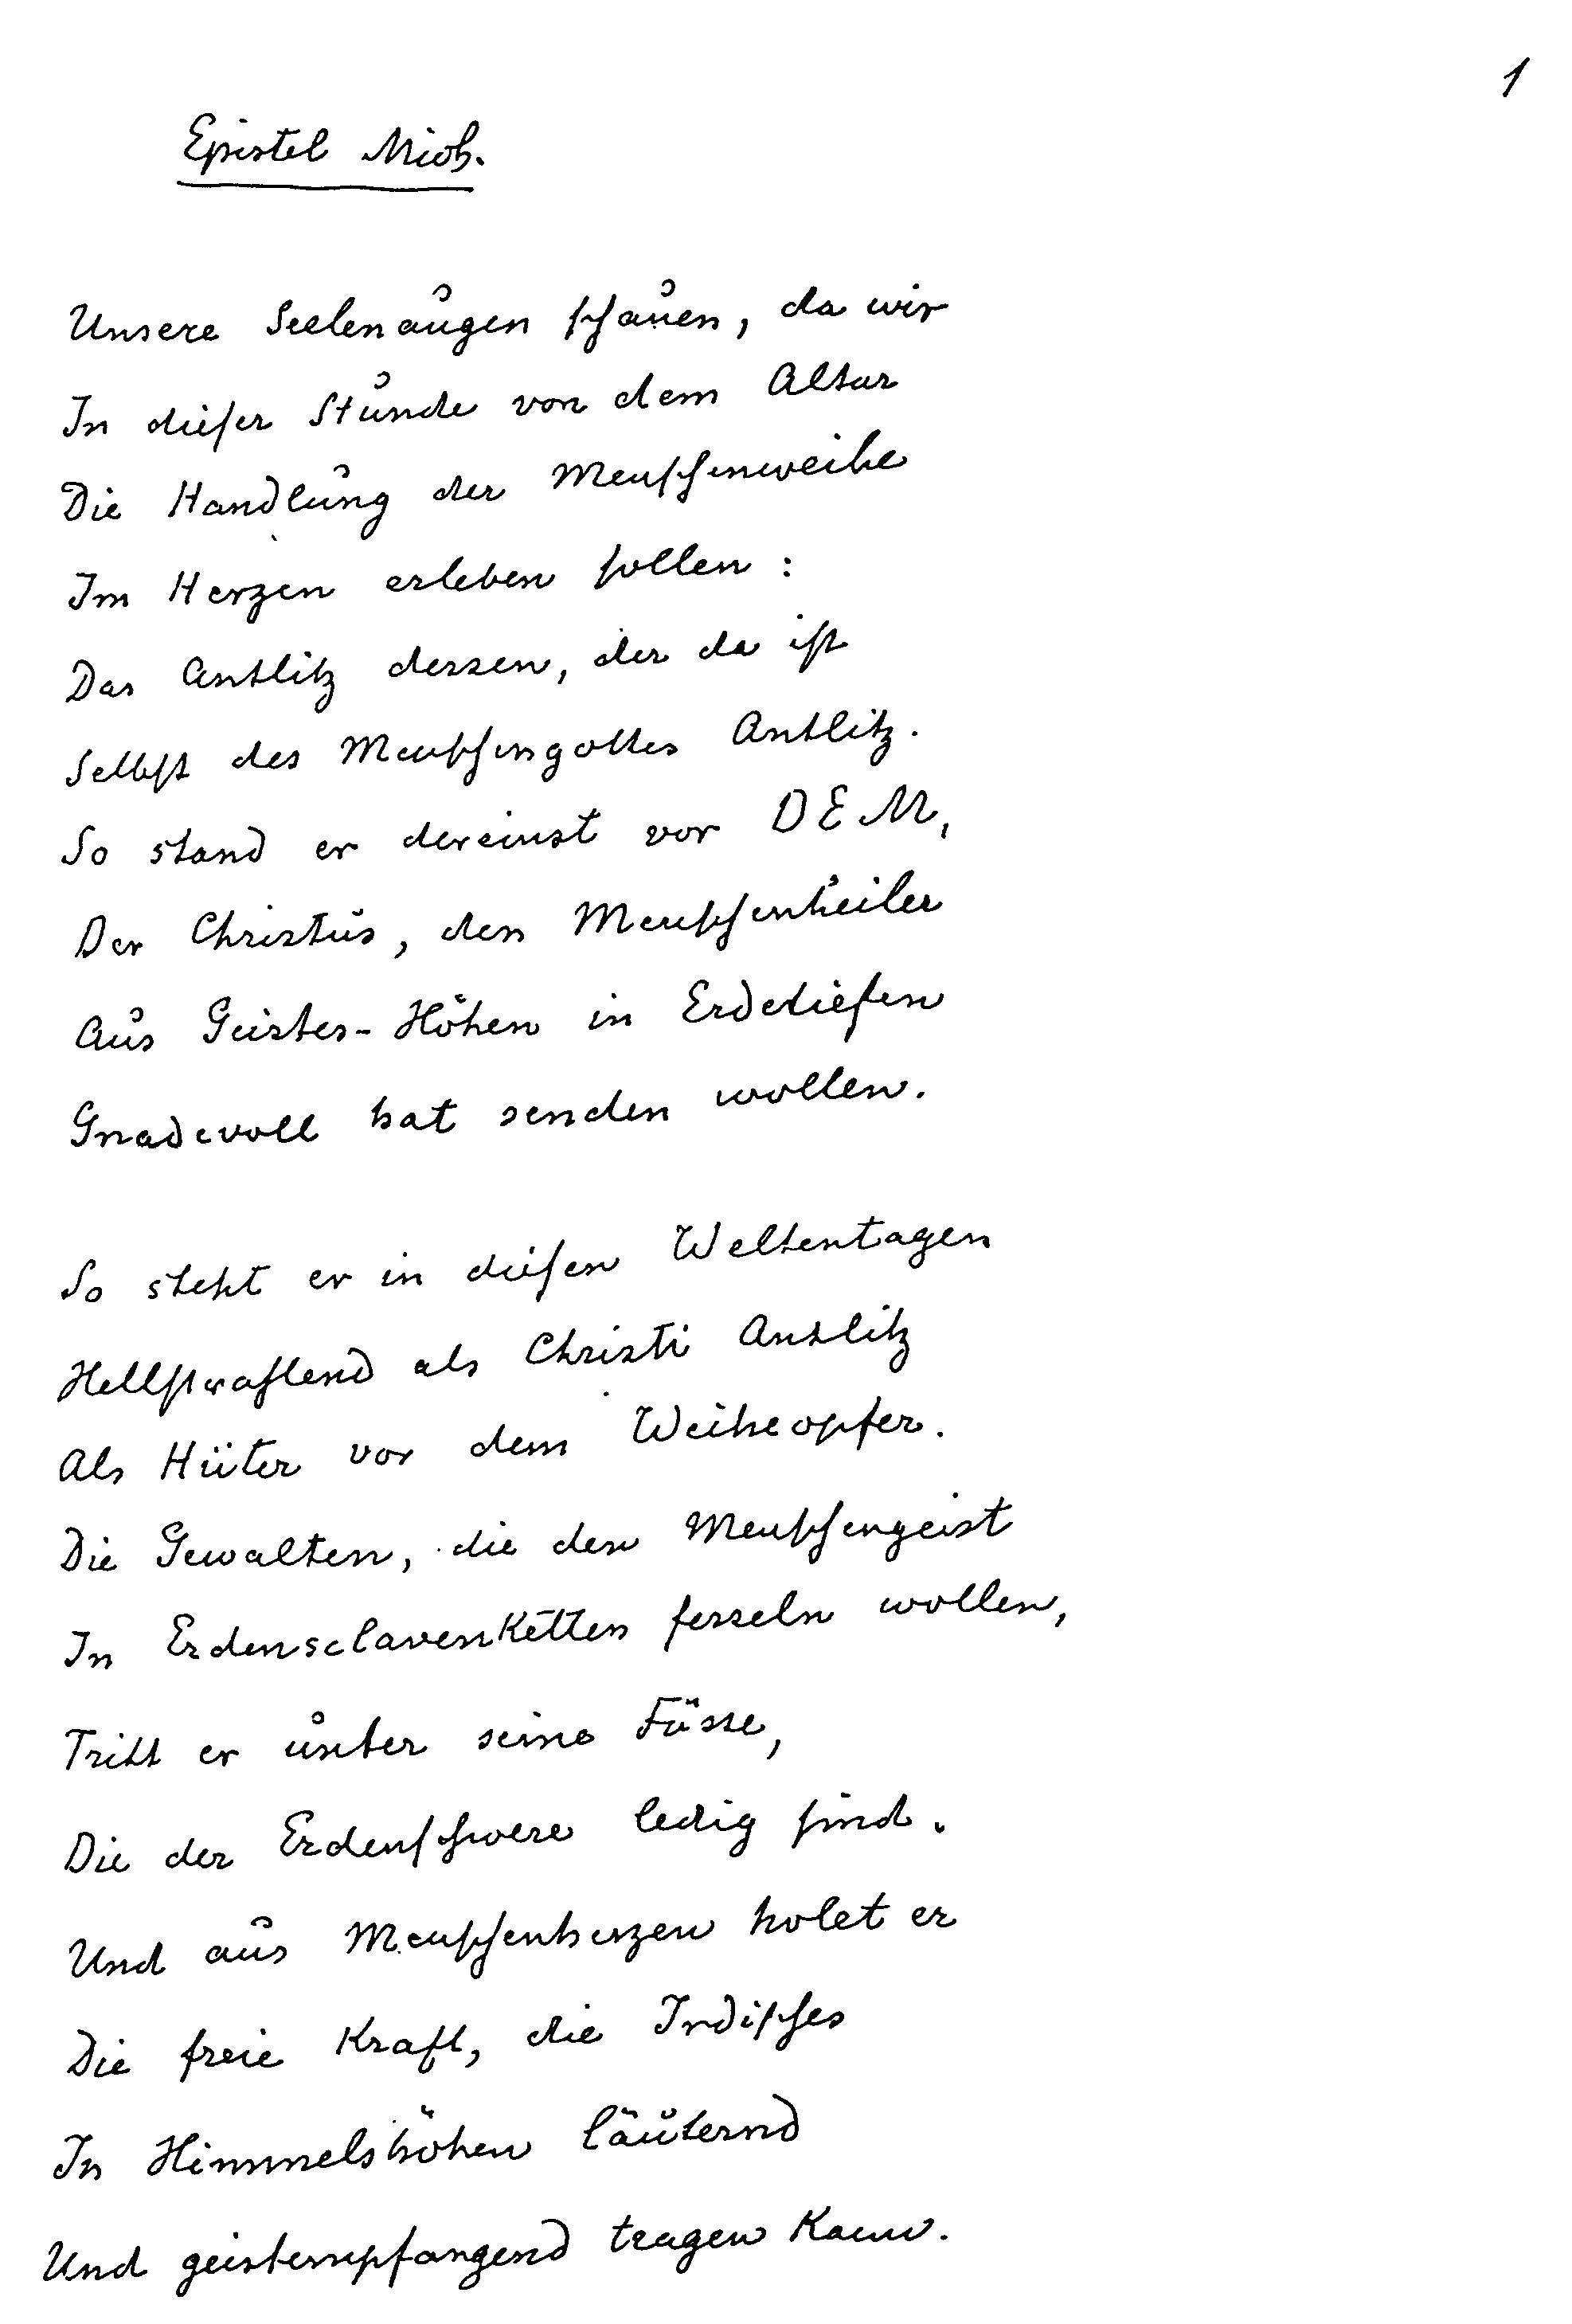 1
Epistel Mich.
Unsere Seelenaugen schauen, da wir
In dieser Stunde von dem Altar
Die Handlung der Menschenweihe
Im Herzen erleben sollen :
Das Antlitz dessen, der da ist
Selbst des Menschengottes Antlitz.
So stand er dereinst vor DEM,
Der Christus, den Menschenheiler
Aus Geistes-Höhen in Erdetiefen
Gnadevoll hat senden wollen.
So steht er in diesen Weltentagen
Hellstrahlend als Christi Antlitz
Als Hüter vor dem Weiheopfer.
Die Gewalten, die den Menschengeist
In Erdensclavenketten fesseln wollen,
Tritt er unter seine Füsse,
Die der Erdenschwere ledig sind.
Und aus Menschenherzen holet er
Die freie Kraft, die Irdisches
In Himmelshöhen läuternd
Und geistempfangend tragen kann.